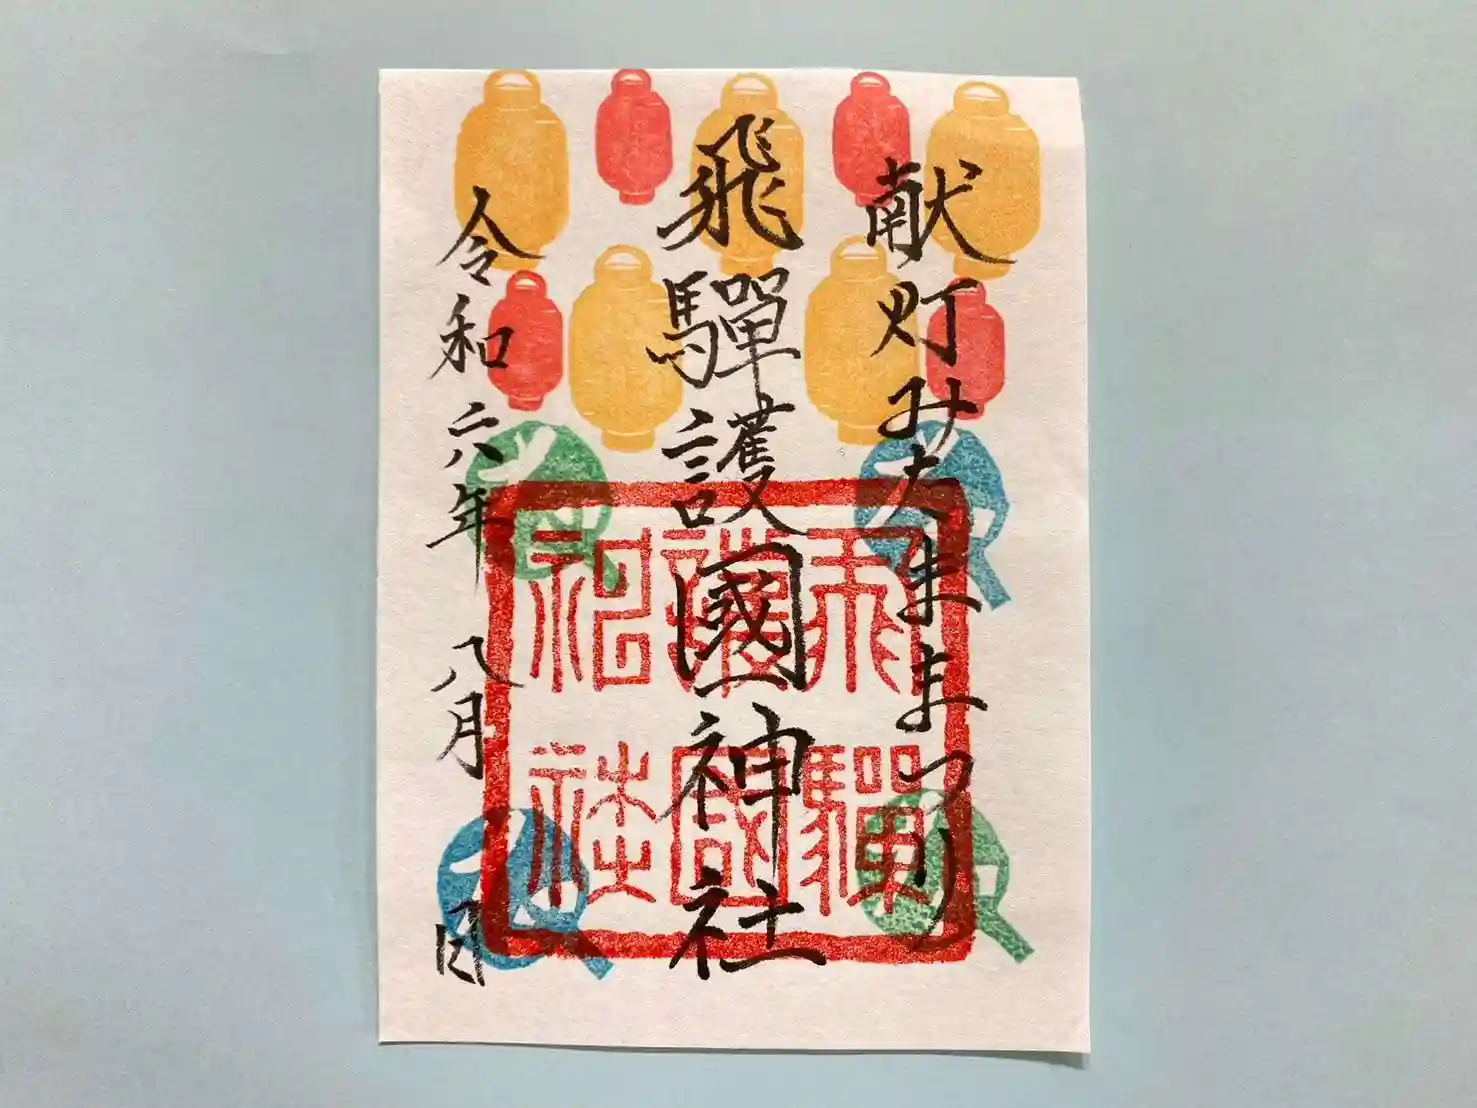 献灯みたままつり
飛驒護國神社
令和六年八月 日
飛驒
護國
神社